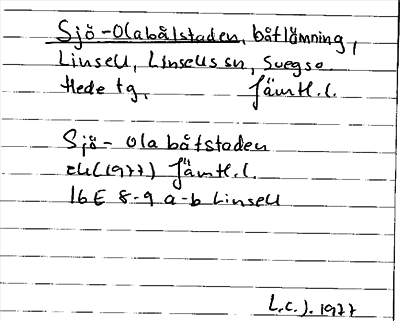 Sjö-Olabålstaden, båtlämning,
Linsell, Linsells sn, Svegs o.
Hede tg, Jämtl. l.
Sjö-Ola båtstaden
ek (1977) Jämtl. l.
16E 8-9 a-b Linsell
L.c.J. 1977